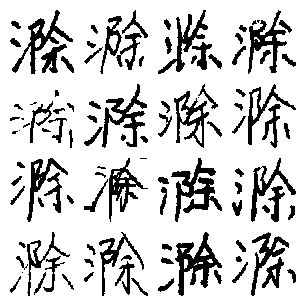 滁滁滁滁
滁滁滁滁
滁滁滁滁
滁滁滁滁